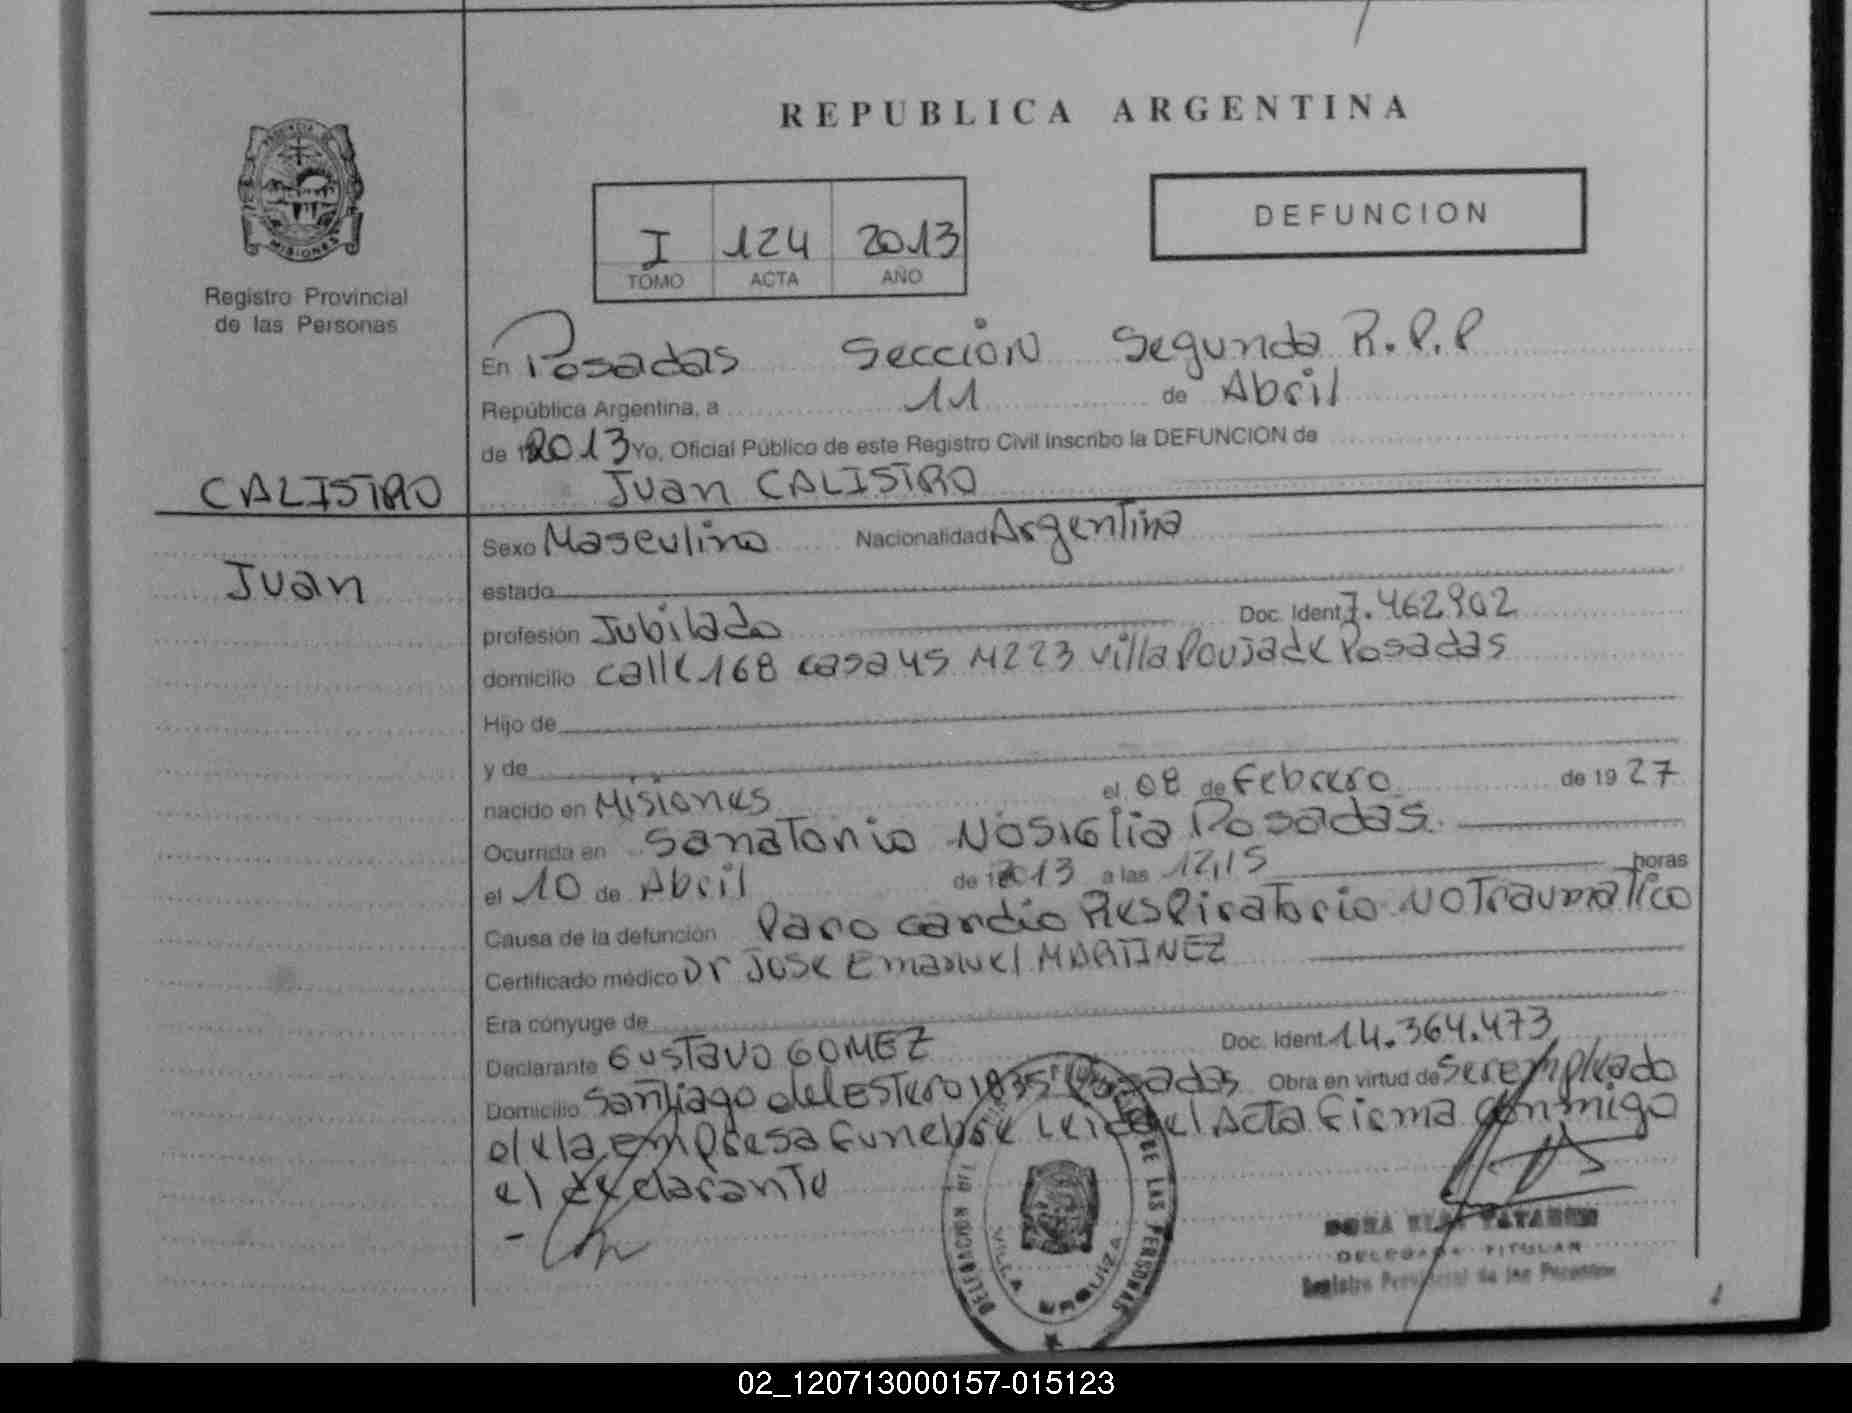 REPUBLICA ARGENTINA
PROVINCIA DE
MISIONES
Registro Provincial
de las Personas
I 124 2013
TOMO ACTA AÑO
DEFUNCION
En Posadas Sección Segunda R.P.P
República Argentina, a 11 de Abril
de 2013 Yo, Oficial Público de este Registro Civil inscribo la DEFUNCION de
CALISTRO
Juan CALISTRO
Sexo Masculino Nacionalidad Argentina
Juan
estado
profesión Jubilado Doc. Ident. 7.462.902
domicilio calle 168 casa 45 M223 Villa Poujade Posadas
Hijo de
y de
nacido en Misiones el 08 de Febrero de 1927
Ocurrida en Sanatorio Nosiglia Posadas.
el 10 de Abril de 2013 a las 12,15 horas
Causa de la defunción Paro cardio Respiratorio no Traumatico
Certificado médico Dr Jose Emanuel MARTINEZ
Era cónyuge de
Declarante Gustavo GOMEZ Doc. Ident. 14.364.473
Domicilio Santiago del Estero 1835 Posadas Obra en virtud de ser empleado
de la empresa funebre leida el Acta firma conmigo
el declarante
DE LAS PERSONAS
VILLA URQUIZA
DELEGADA TITULAR
Registro Provincial de las Personas
02_120713000157-015123